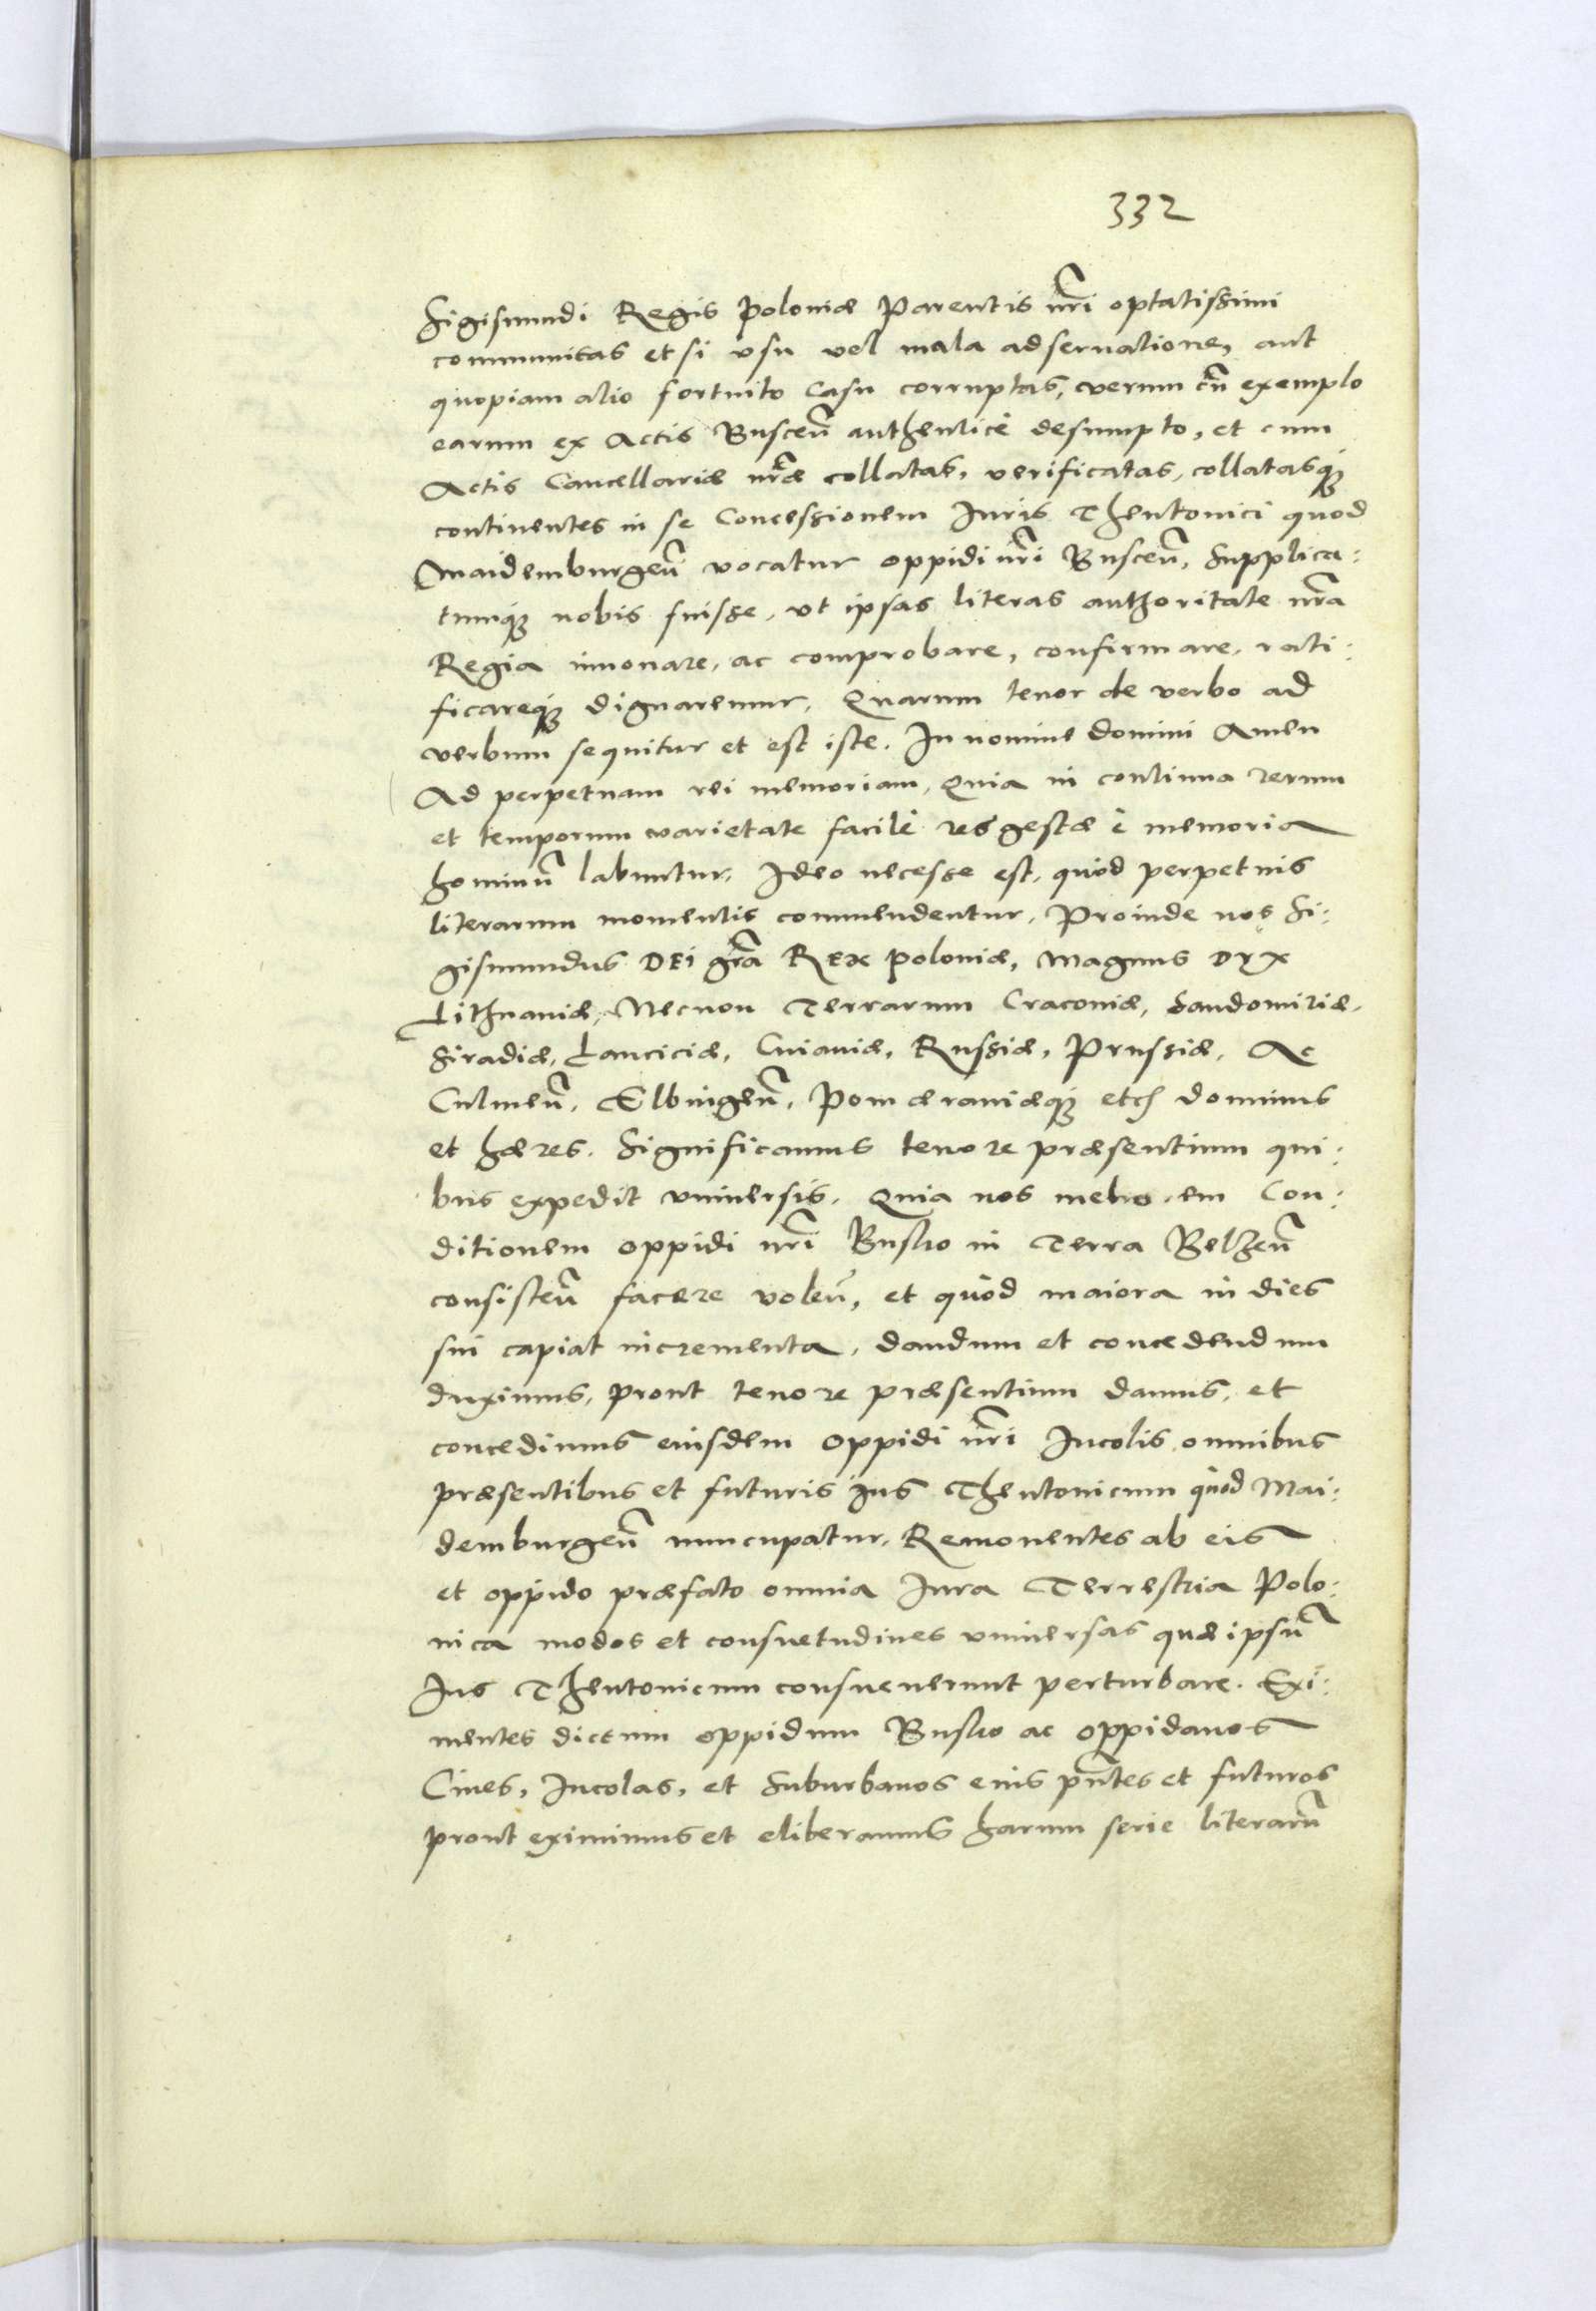 332
Sigismundi Regis Poloniæ Parentis nr̃i optatissimi
communitas etsi vsu vel mala adseruatione, aut
quopiam alio fortuito Casu corruptas, verum cũ exemplo
earum ex Actis Busceñ authenticè desumpto, et cum
Actis Cancellariæ nr̃æ collatas, verificatas, collatasq́ꝫ
continentes in se Concessionem Iuris Theutonici quod
Maidemburgeñ vocatur oppidi nr̃i Busceñ, Supplica:
tumq́ꝫ nobis fuisse, vt ipsas literas authoritate nr̃a
Regia innouare, ac comprobare, confirmare, rati:
ficareq́ꝫ dignaremur, Quarum tenor de verbo ad
verbum sequitur et est iste. In nomine Domini Amen
Ad perpetuam rei memoriam, Quia in continua rerum
et temporum varietate facilè res gestæ è memoria
hominũ labuntur, Ideo necesse est, quòd perpetuis
literarum momentis commendentur, Proinde nos Si:
gismundus DEI gr̃a REX Poloniæ, Magnus DVX
Lithuaniæ, Necnon Terrarum Cracouiæ, Sandomiriæ,
Siradiæ, Lanciciæ, Cuiauiæ, Russiæ, Prussiæ, Ac
Culmeñ, Elbingeñ, Pomæraniæq́ꝫ etc̃ dominus
et hæres. Significamus tenore præsentium qui:
bus expedit vniuersis, Quia nos meliorem Con:
ditionem oppidi nr̃i Busko in Terra Belzeñ
consisteñ facere voleñ, et quòd maiora in dies
sui capiat incrementa, dandum et concedendum
duximus, prout tenore præsentium damus, et
concedimus eiusdem oppidi nr̃i Incolis omnibus
præsentibus et futuris ius Theutonicum quod Mai:
demburgeñ nuncupatur, Remouentes ab eis
et oppido præfato omnia Iura Terrestria Polo:
nica modos et consuetudines vniuersas quæ ipsũ
Ius Theutonicum consueuerunt perturbare. Exi:
mentes dictum oppidum Busko ac oppidanos
Ciues, Incolas, et Suburbanos eius pñtes et futuros
prout eximimus et eliberamus harum serie literarũ